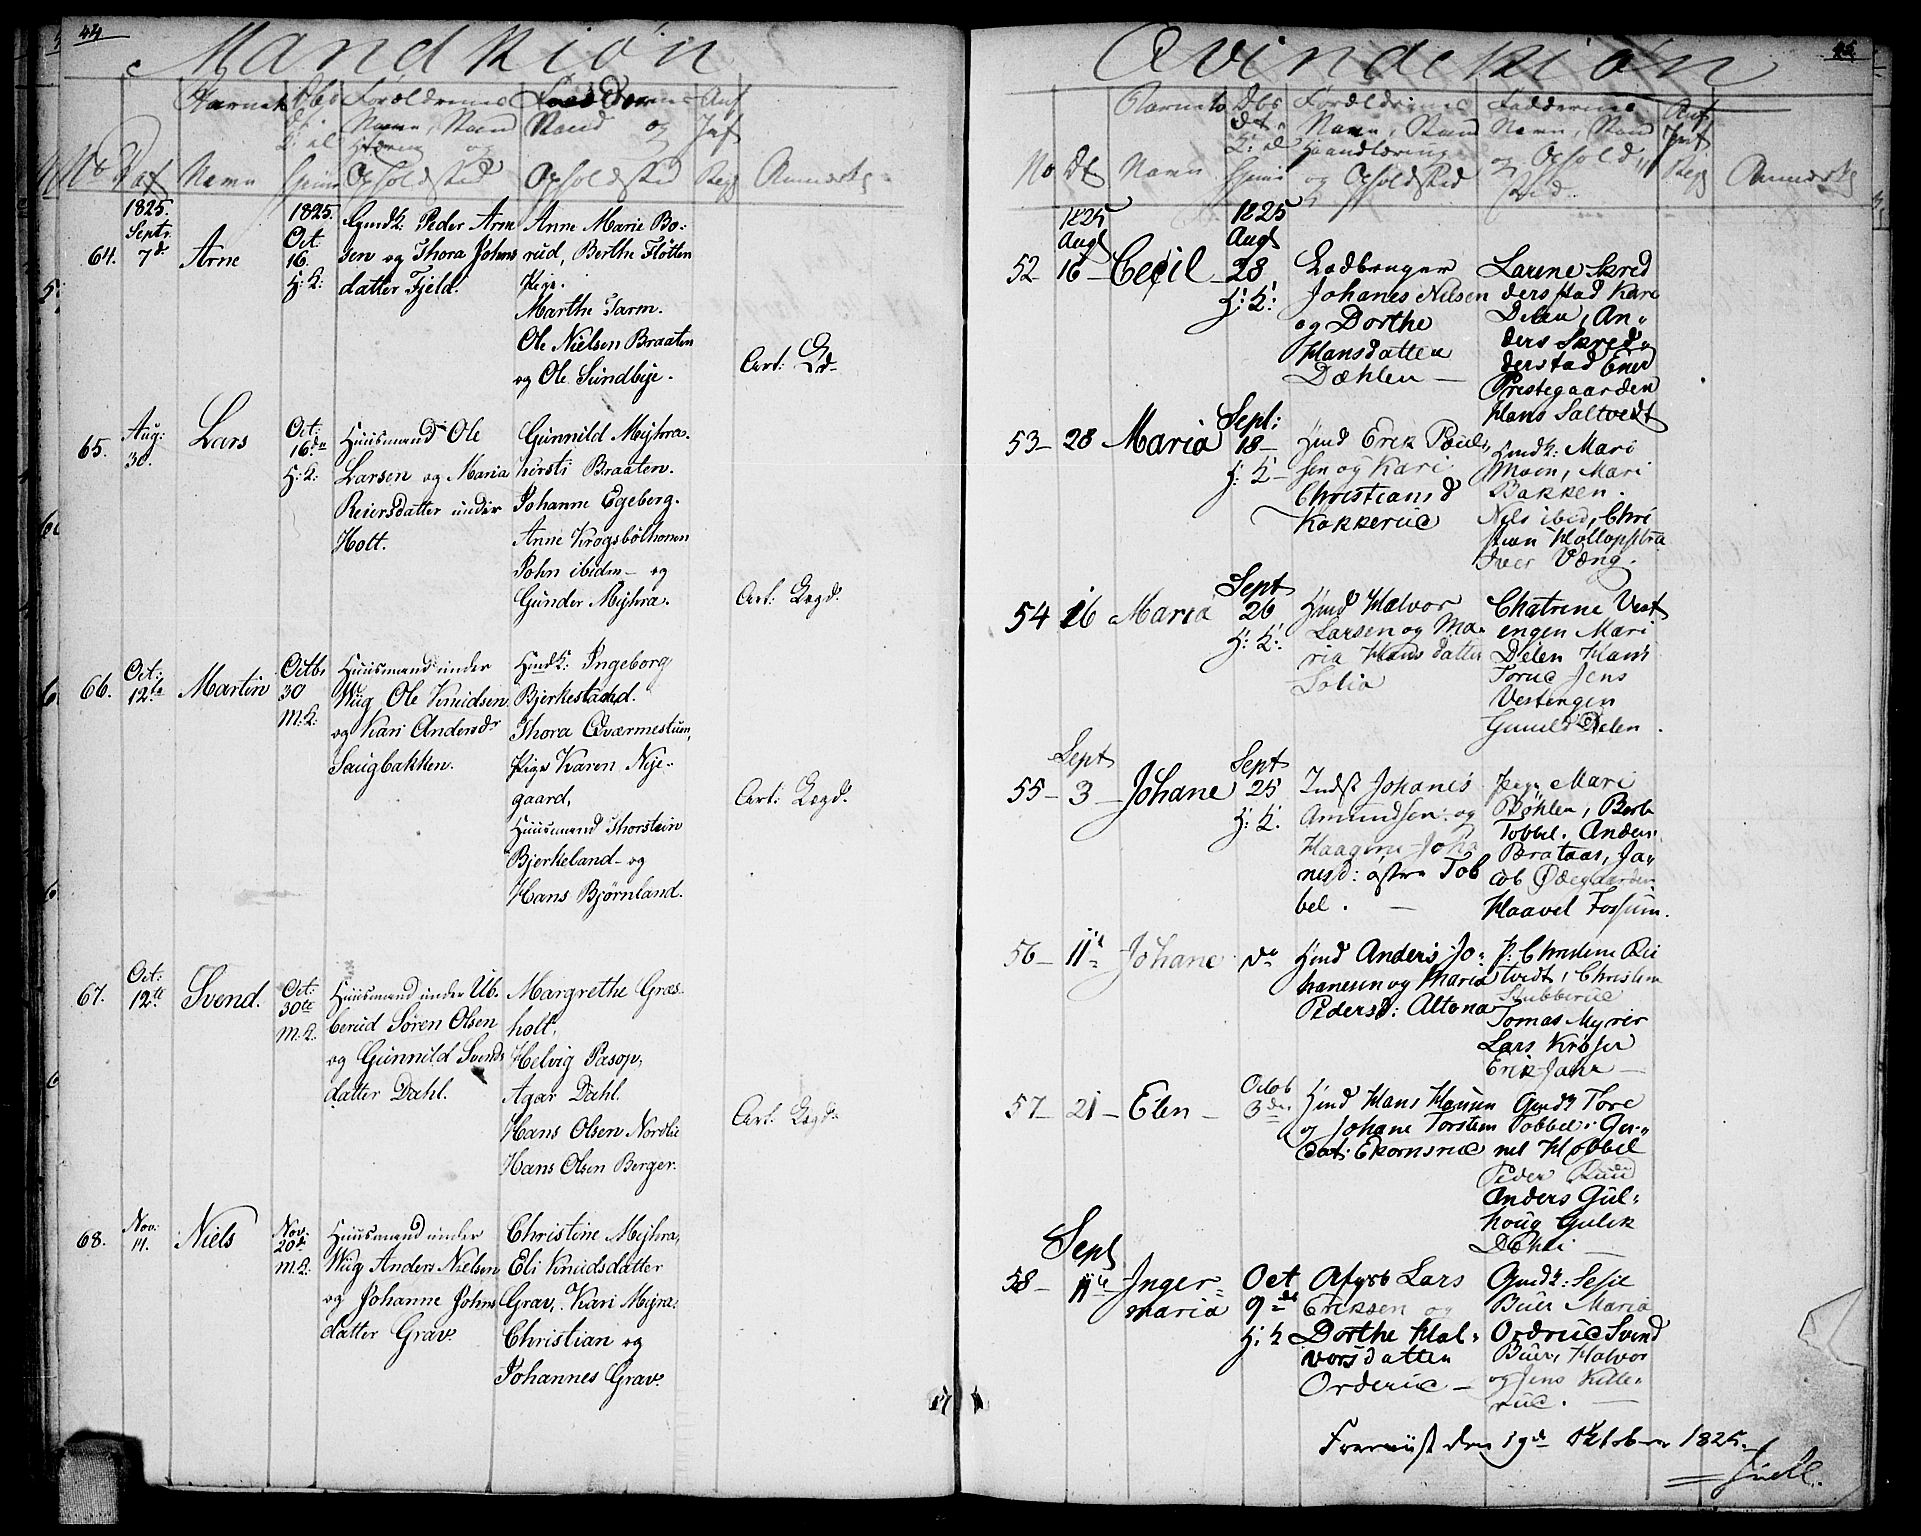 44
Mandkiøn
Barnets
Forældrenes
Navn, Stand
og
Stand og
No Dag Navn Opholdsted Opholdsted Anmærkg
1825.
Septr
64. 7de Arne
1825.
Oct.
16.
H: K:
Gmdk: Peder Arne
sen og Thora Johns
datter Fjeld.
Anne Marie Bo-
rud, Berthe Flotten
Pige.
Marthe Tarm.
Ole Nielsen Braaten
og Ole Sundbye.
65. Aug: 30. Lars
Oct:
16de
H: K:
Huusmand Ole
Larsen og Maria
Reiersdatter under
Holt.
Gunnild Mÿhra.
Kirsti Braaten.
Johanne Egeberg.
Anne Krogsbölhonen
John ibidm - og
Gunder Mÿhra.
66. Oct: 12te Martin
Octbr
30
M: K:
Huusmand under
Wiig Ole Knudsen
og Kari Andersdr
Saugbakken.
Hmdk: Ingeborg
Bjerkestand.
Thora Qværnestuen,
Pige Karen Nye-
gaard,
Huusmand Thorstein
Bjerkeland - og
Hans Bjørnland.
67. Oct: 12te Svend.
Oct:
30te
M: K.
Huusmand under Ub-
berud Søren Olsen
og Gunnild Svends
datter Dahl.
Margrethe Græs-
holt,
Helvig Pasop,
Agar Dahl.
Hans Olsen Nordlie
Hans Olsen Berger.
68. Nov: 11. Niels
Nov:
20de
M: K:
Huusmand under
Wiig Anders Nielsen
og Johanne Johns
datter Grav.
Christine Mÿhra,
Eli Knudsdatter
Grav, Kari Mÿra.
Christian og
Johannes Grav.
45
Qvindekiøn
Barnets
Forældrenes
Navn, Stand
Haandtæring
og Opholdsted
Faddernes
Navn, Stand
og Ophold
sted
No Dt Navn Anmærkg
1825
Augt
52 - 16 - Cecil -
1825
Augt
28
H: K:
Johanes Nilsen
og Dorthe
Hansdatter
Dæhlen -
Larene Skred
derstad Kari
Delen, An-
ders Skred-
derstad Ener
Prestegaarden
Hans Saltvedt
53 - 28 Maria
Sept:
18 -
H: K -
Hmd Erik Paul-
sen og Kari
Christiansd
Kokkerud
Hmdk: Mari
Moen, Mari
Bakken.
Nils ibid, Chri
stian
Iver Væng.
54 26 Maria
Sept
26
H: K:
Hmd Halvor
Larsen og Ma-
ria Hansdatter
Solia
Chatrine Vest
engen Mari
Delen Hans
Torud Jens
Vestengen
Gunild Delen.
Sept
55 - 3 - Johane
Sept
25
H: K.
Indst Johanes
Amundsen og
Haagine Joha
nesd: østre Tob
bel. -
Pige Mari
Bøhlen, Berte
Tobbel. Anders
Brataas, Ja-
cob Ødegaarden
Haavel Fossum.
56 - 11te Johane do
Hmd Anders Jo-
hanesen og Maria
Pedersd: Altona
P: Christine Rii
tvedt, Christine
Stubberud
Tomas Myrer
Lars Krøser
Erik Jahr -
57 - 21 - Elen -
Octob
3de
Hmd Hans Hansen
og Johane Torsten
dat: Ekornsrud
Gmdk Tore
Tobbel. Gu-
nel Hobbel
Peder Ruud
Anders Gul-
houg Gulik
Sept
58 - 11te Inger-
maria
Oct
9de
H: K
Afgsb Lars
Eriksen og
Dorthe Hal-
vorsdatter
Orderud -
Gmdk: Sesie
Buer Maria
Orderud Svend
Buer, Halvor
og Jens Kille-
rud. -
Fremviist den 19de October 1825.
Juell.